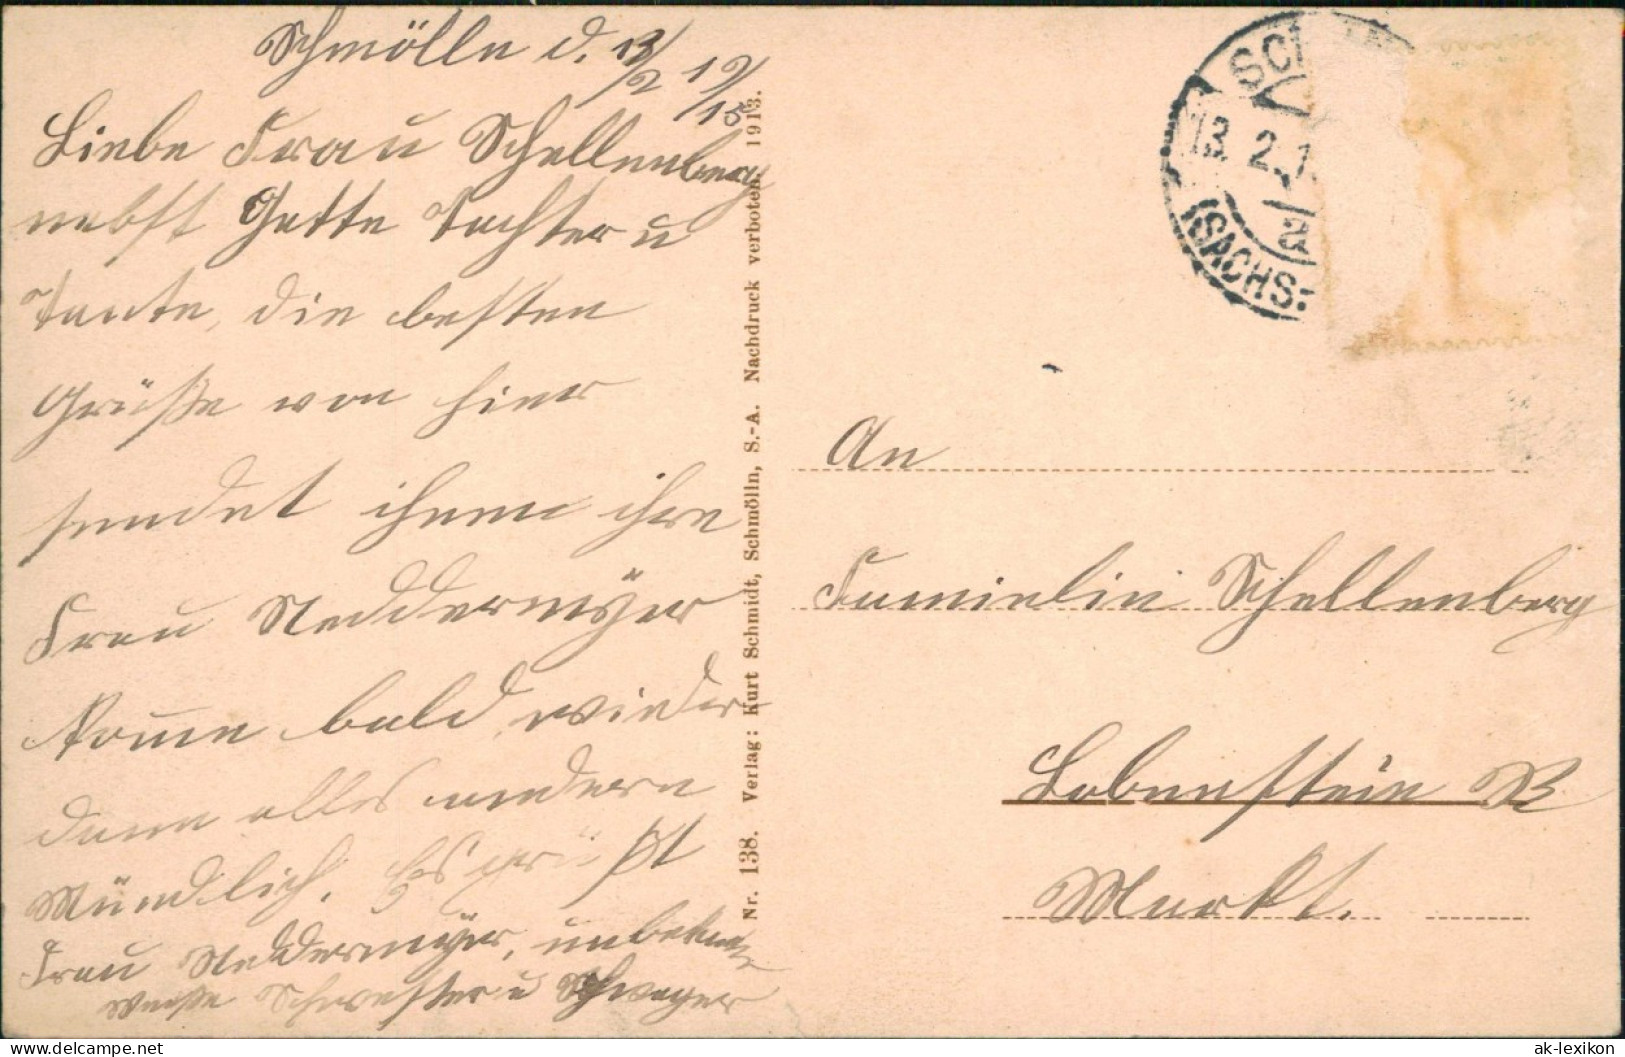 Schmölln d. 13/2 19/15
Liebe Frau Schellenberg
nebst Gatte Tochter u
Tante, die besten
Grüße von hier
sendet ihnen ihre
Frau Neddermeyer
Komme bald wieder
dann alles andere
Mündlich. Es grüßt
Frau Neddermeyer, unbekannter
Weiße Schwester u Schwager
Nr. 138. Verlag: Kurt Schmidt, Schmölln, S.-A. Nachdruck verboten. 1913.
13. 2. 1
(SACHS.-
An
Familie Schellenberg
Lobenstein R
Markt.
© ak-ansichtskarten.de
ak-lexikon